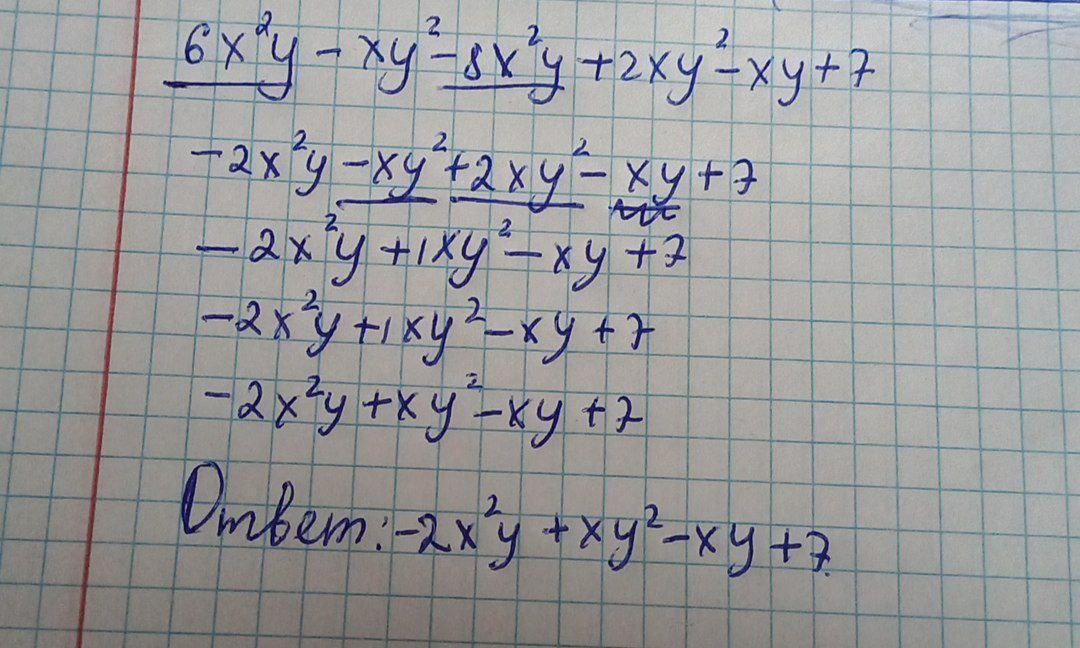 6x²y - xy² - 8x²y + 2xy² - xy + 7
-2x²y - xy² + 2xy² - xy + 7
-2x²y + 1xy² - xy + 7
-2x²y + 1xy² - xy + 7
-2x²y + xy² - xy + 7
Ответ: -2x²y + xy² - xy + 7.